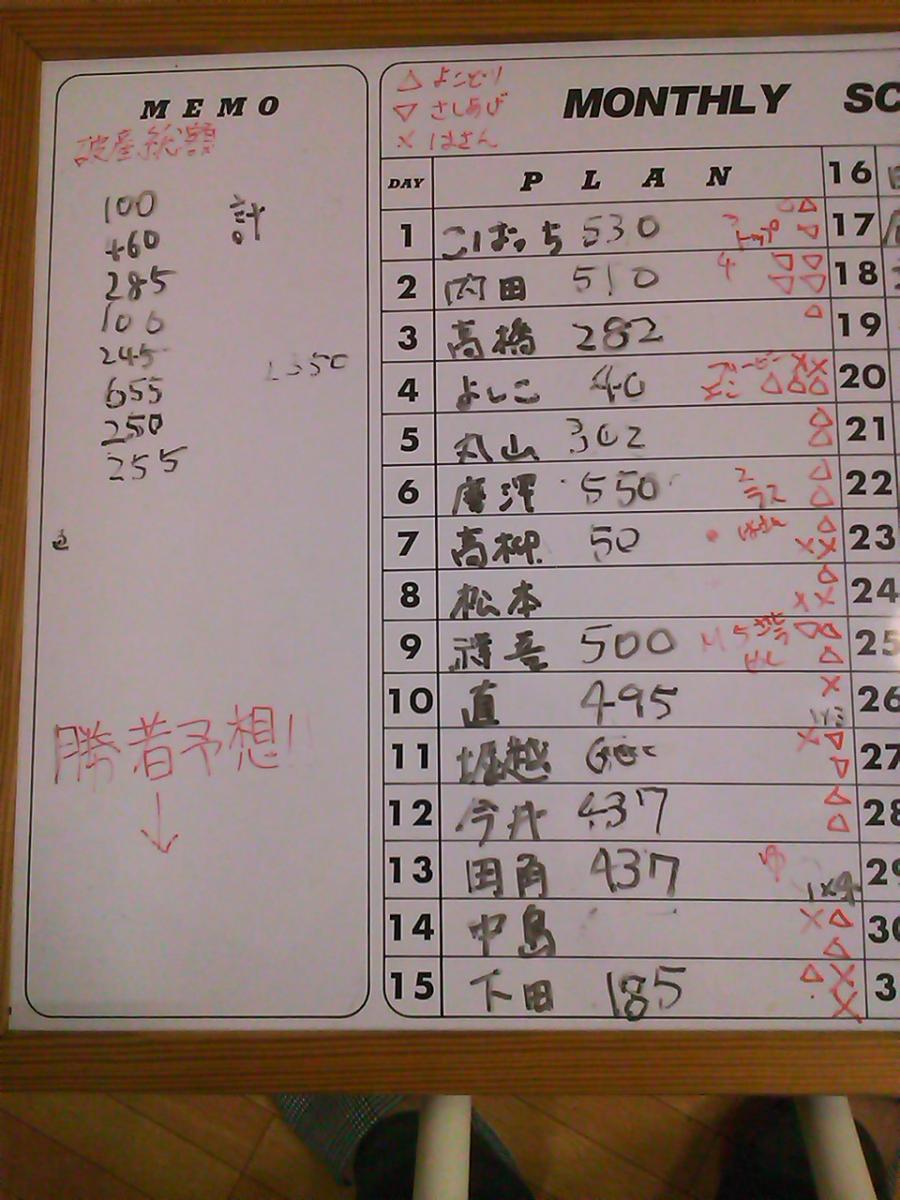 MEMO
破産総額
100 計
460
285
100
245
2350
655
250
255
勝者予想!!
↓
△ よこどり
▽ さしあげ
× はさん
MONTHLY SC
DAY PLAN
1 こばっち 530 トップ △ ▽
2 内田 510 4 ▽▽ ▽▽
3 高橋 282 △
4 よしこ 40 ×× △△△
5 丸山 302 △ △
6 唐澤 550 2 ラス △ △
7 高柳 50 △ ××
8 松本 △ ××
9 500 ▽△ △
10 直 495 ×
11 堀越 × ▽ ▽
12 今井 437 △ △
13 田角 437 1×4
14 中島 ×△ △
15 下田 185 △× ×
16
17
18
19
20
21
22
23
24
25
26
27
28
29
30
3